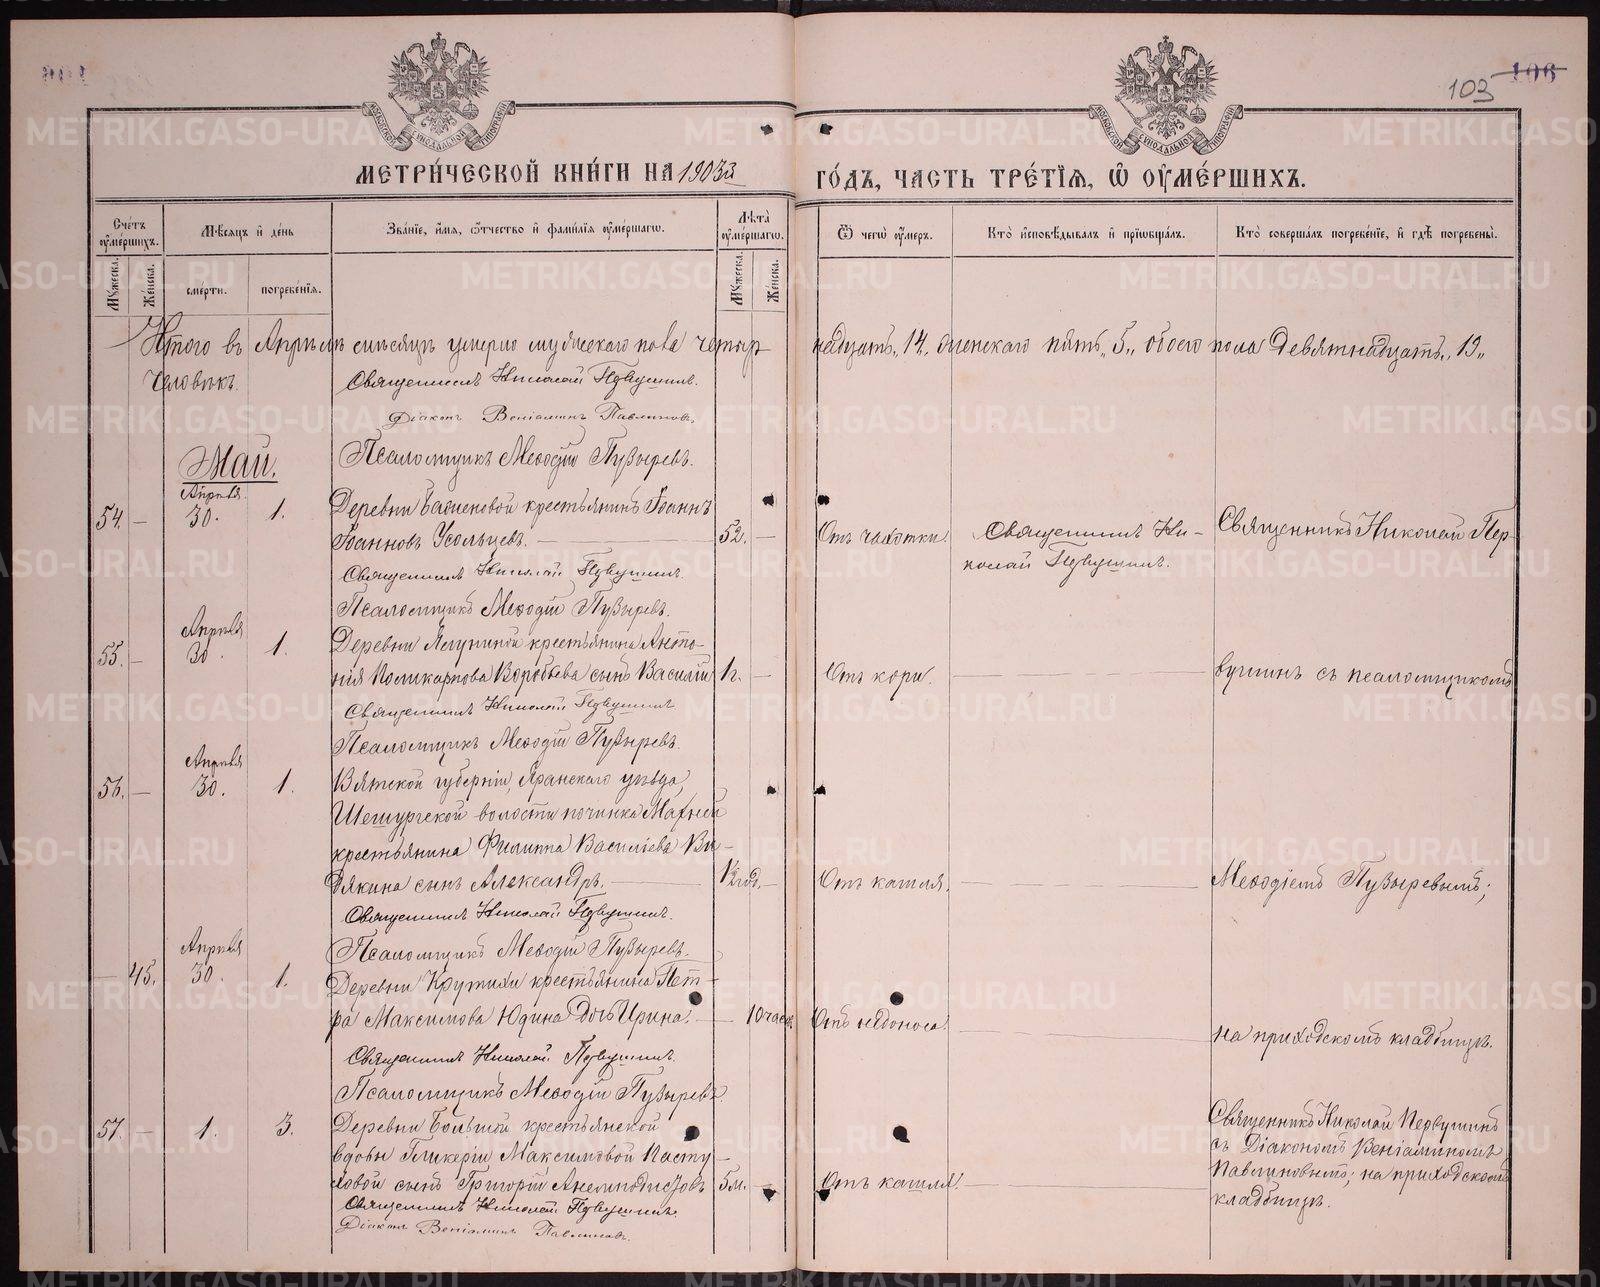 103 106
МЕТРИ́ЧЕСКОЙ КНИ́ГИ НА 1903й ГО́ДЪ, ЧАСТЬ ТРЕ́ТІЯ, Ѡ ОУМЕ́РШИХЪ.
Счетъ оумершихъ. Мѣсяцъ и день Званіе, имя, отчество и фамилія оумершагѡ. Лѣта оумершагѡ. Ѿ чегѡ оумеръ. Кто исповѣдывалъ и пріѡбщалъ. Кто совершалъ погребеніе, и гдѣ погребены.
Мужеска. Женска. смерти. погребенія. Мужеска. Женска.
Итого въ Апрѣлѣ мѣсяцѣ умерло мужескаго пола четыр надцать „14„ женскаго пять „5„ обоего пола девятнадцать „19„
человѣкъ.
Священникъ Николай Первушинъ.
Діаконъ Веніаминъ Павлиновъ.
Псаломщикъ Меѳодій Пузыревъ.
Май.
54. — Апрѣля 30. 1. Деревни крестьянинъ Іоаннъ
Іоанновъ Усольцевъ. — 52. — Отъ чахотки. Священникъ Ни- Священникъ Николай Пер
колай Первушинъ.
Священникъ Николай Первушинъ.
Псаломщикъ Меѳодій Пузыревъ.
55. — Апрѣля 30. 1. Деревни Ягуниной крестьянина Анто-
нія Поликарпова Воробьева сынъ Василій 1 г. — Отъ кори. — вушинъ съ псаломщикомъ
Священникъ Николай Первушинъ
Псаломщикъ Меѳодій Пузыревъ.
56. — Апрѣля 30. 1. Вятской губерніи, Яранскаго уѣзда,
Шешургской волости починка
крестьянина Филиппа Васильева Ви-
дякина сынъ Александръ. — 1/2 год. — Отъ кашля. — Меѳодіемъ Пузыревымъ;
Священникъ Николай Первушинъ.
Псаломщикъ Меѳодій Пузыревъ.
— 45. Апрѣля 30. 1. Деревни Крутихи крестьянина Пет-
ра Максимова Юдина дочь Ирина. — 10 часов. Отъ недоноса. — на приходскомъ кладбищѣ.
Священникъ Николай Первушинъ.
Псаломщикъ Меѳодій Пузыревъ.
57. — 1. 3. Деревни Большой крестьянской
вдовы Гликеріи Максимовой Пасту-
ховой сынъ Григорій Анемподистовъ 5 м. — Отъ кашля. —
Священникъ Николай Первушинъ
съ Діакономъ Веніаминомъ
Павлиновымъ; на приходскомъ
кладбищѣ.
Священникъ Николай Первушинъ.
Діаконъ Веніаминъ Павлиновъ.
METRIKI.GASO-URAL.RU